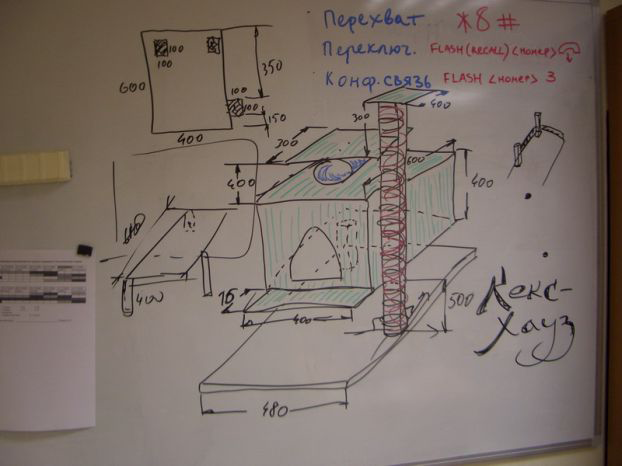 Перехват. *8#
Переключ. FLASH (RECALL) <номер>
Конф. связь FLASH <номер> 3
100
100
600
350
100
100
150
400
400
300
300
600
400
400
400
16
400
500
480
Лекс-
Хауз